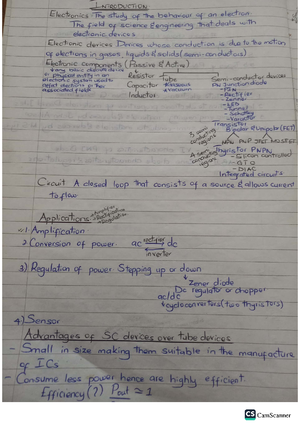 INTRODUCTION
Electronics The study of the behaviour of an electron
The field of science & engineering that deals with
electronic devices
Electronic devices Devices whose conduction is due to the motion
of electrons in gases, liquids & solids (semi-conductors)
Electronic components (Passive & Active)
+ any basic discrete device
+ physical entity in an
electronic system used to
affect electrons or their
associated fields
Resistor
Capacitor
Inductor
Tube
Gaseous
& vacuum
Semi-conductor devices
PN Junction diode
- PIN
- Rectifier
- Zener
- LED
- Tunnel
- Schottky
- Varactor
Transistor
Bipolar & Unipolar (FET)
NPN PNP JFET MOSFET
3 semi
conducting
regions
4 semi
conducting
regions
Thyristor PNPN
- Silicon controlled
- GTO
- DIAC
Integrated circuits
Circuit A closed loop that consists of a source & allows current
to flow
Applications
1) Amplification
2) Conversion of power ac rectifier dc
inverter
3) Regulation of power Stepping up or down
Zener diode
Dc regulator or chopper
ac/dc
cycloconverters (two thyristors)
4) Sensor
Advantages of SC devices over tube devices
- Small in size making them suitable in the manufacture
of ICs
- Consume less power hence are highly efficient.
Efficiency (?) Pout ≈ 1
CS CamScanner